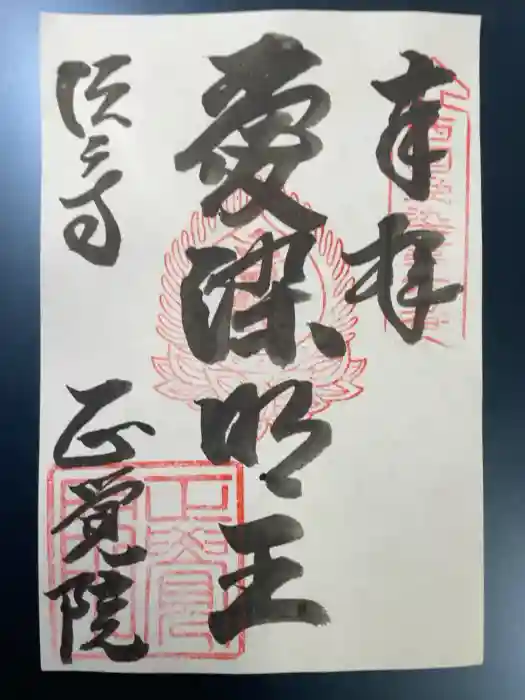 奉拝
愛染明王
須磨寺 正覚院